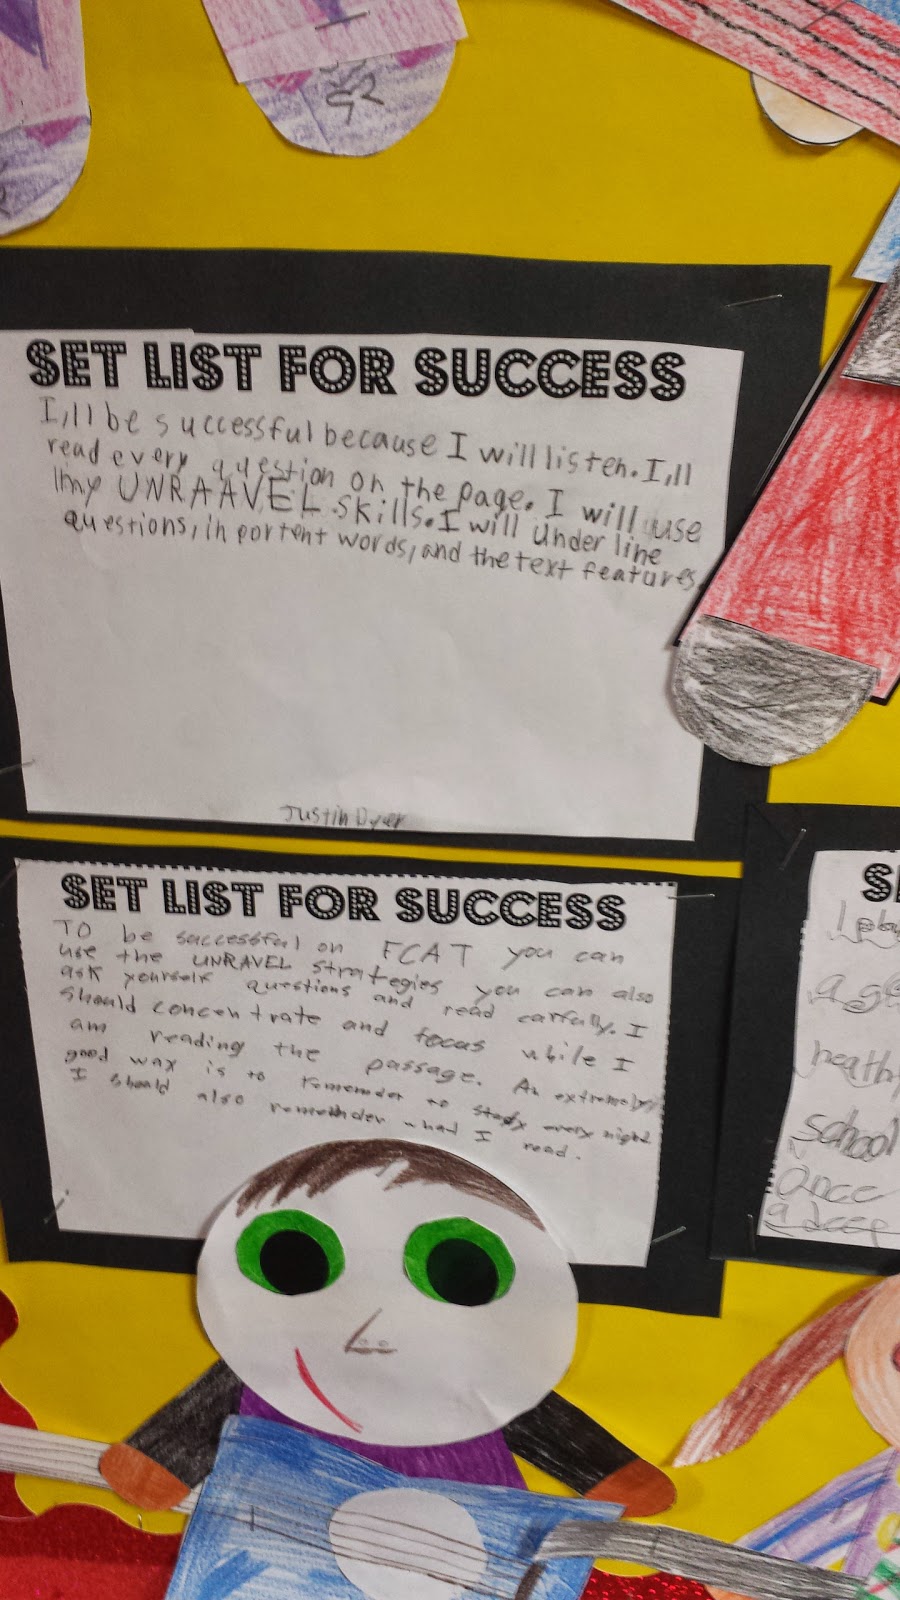 SET LIST FOR SUCCESS
I,ll be successful because I will listen. I,ll
read every question on the page. I will use
my UNRAAVEL skills. I will under line
questions, in portent words, and the text features.
Justin Dyer
SET LIST FOR SUCCESS
TO be successful on FCAT you can
use the UNRAVEL strategies you can also
ask yourself questions and read carfully. I
should concentrate and focus while I
am reading the passage. An extremely
good way is to rememder to study every night
I should also rememder what I read.
school
once